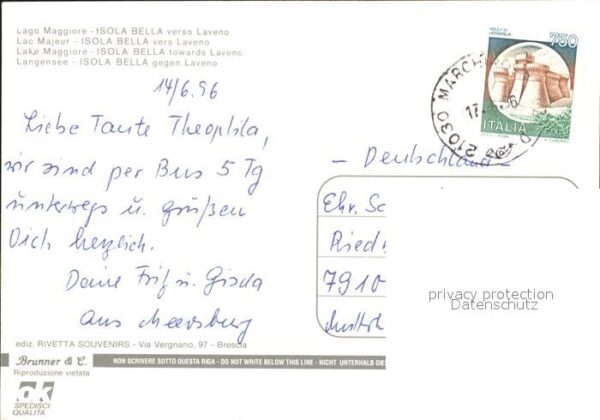 Lago Maggiore - ISOLA BELLA verso Laveno
Lac Majeur - ISOLA BELLA vers Laveno
Lake Maggiore - ISOLA BELLA towards Laveno
Langensee - ISOLA BELLA gegen Laveno
750
ITALIA
21030 MARCH
17
14/6.96
Liebe Tante Theophila,
wir sind per Bus 5 Tg
unterwegs u. grüßen
Dich herzlich.
Deine Fritz u. Gisela
aus Meersburg
- Deutschland -
Ehr. Sc
Ried
7910
privacy protection
Datenschutz
ediz. RIVETTA SOUVENIRS - Via Vergnano, 97 - Brescia
Brunner & C.
Riproduzione vietata
NON SCRIVERE SOTTO QUESTA RIGA - DO NOT WRITE BELOW THIS LINE - NICHT UNTERHALB DIE
ok
SPEDISCI
QUALITÀ